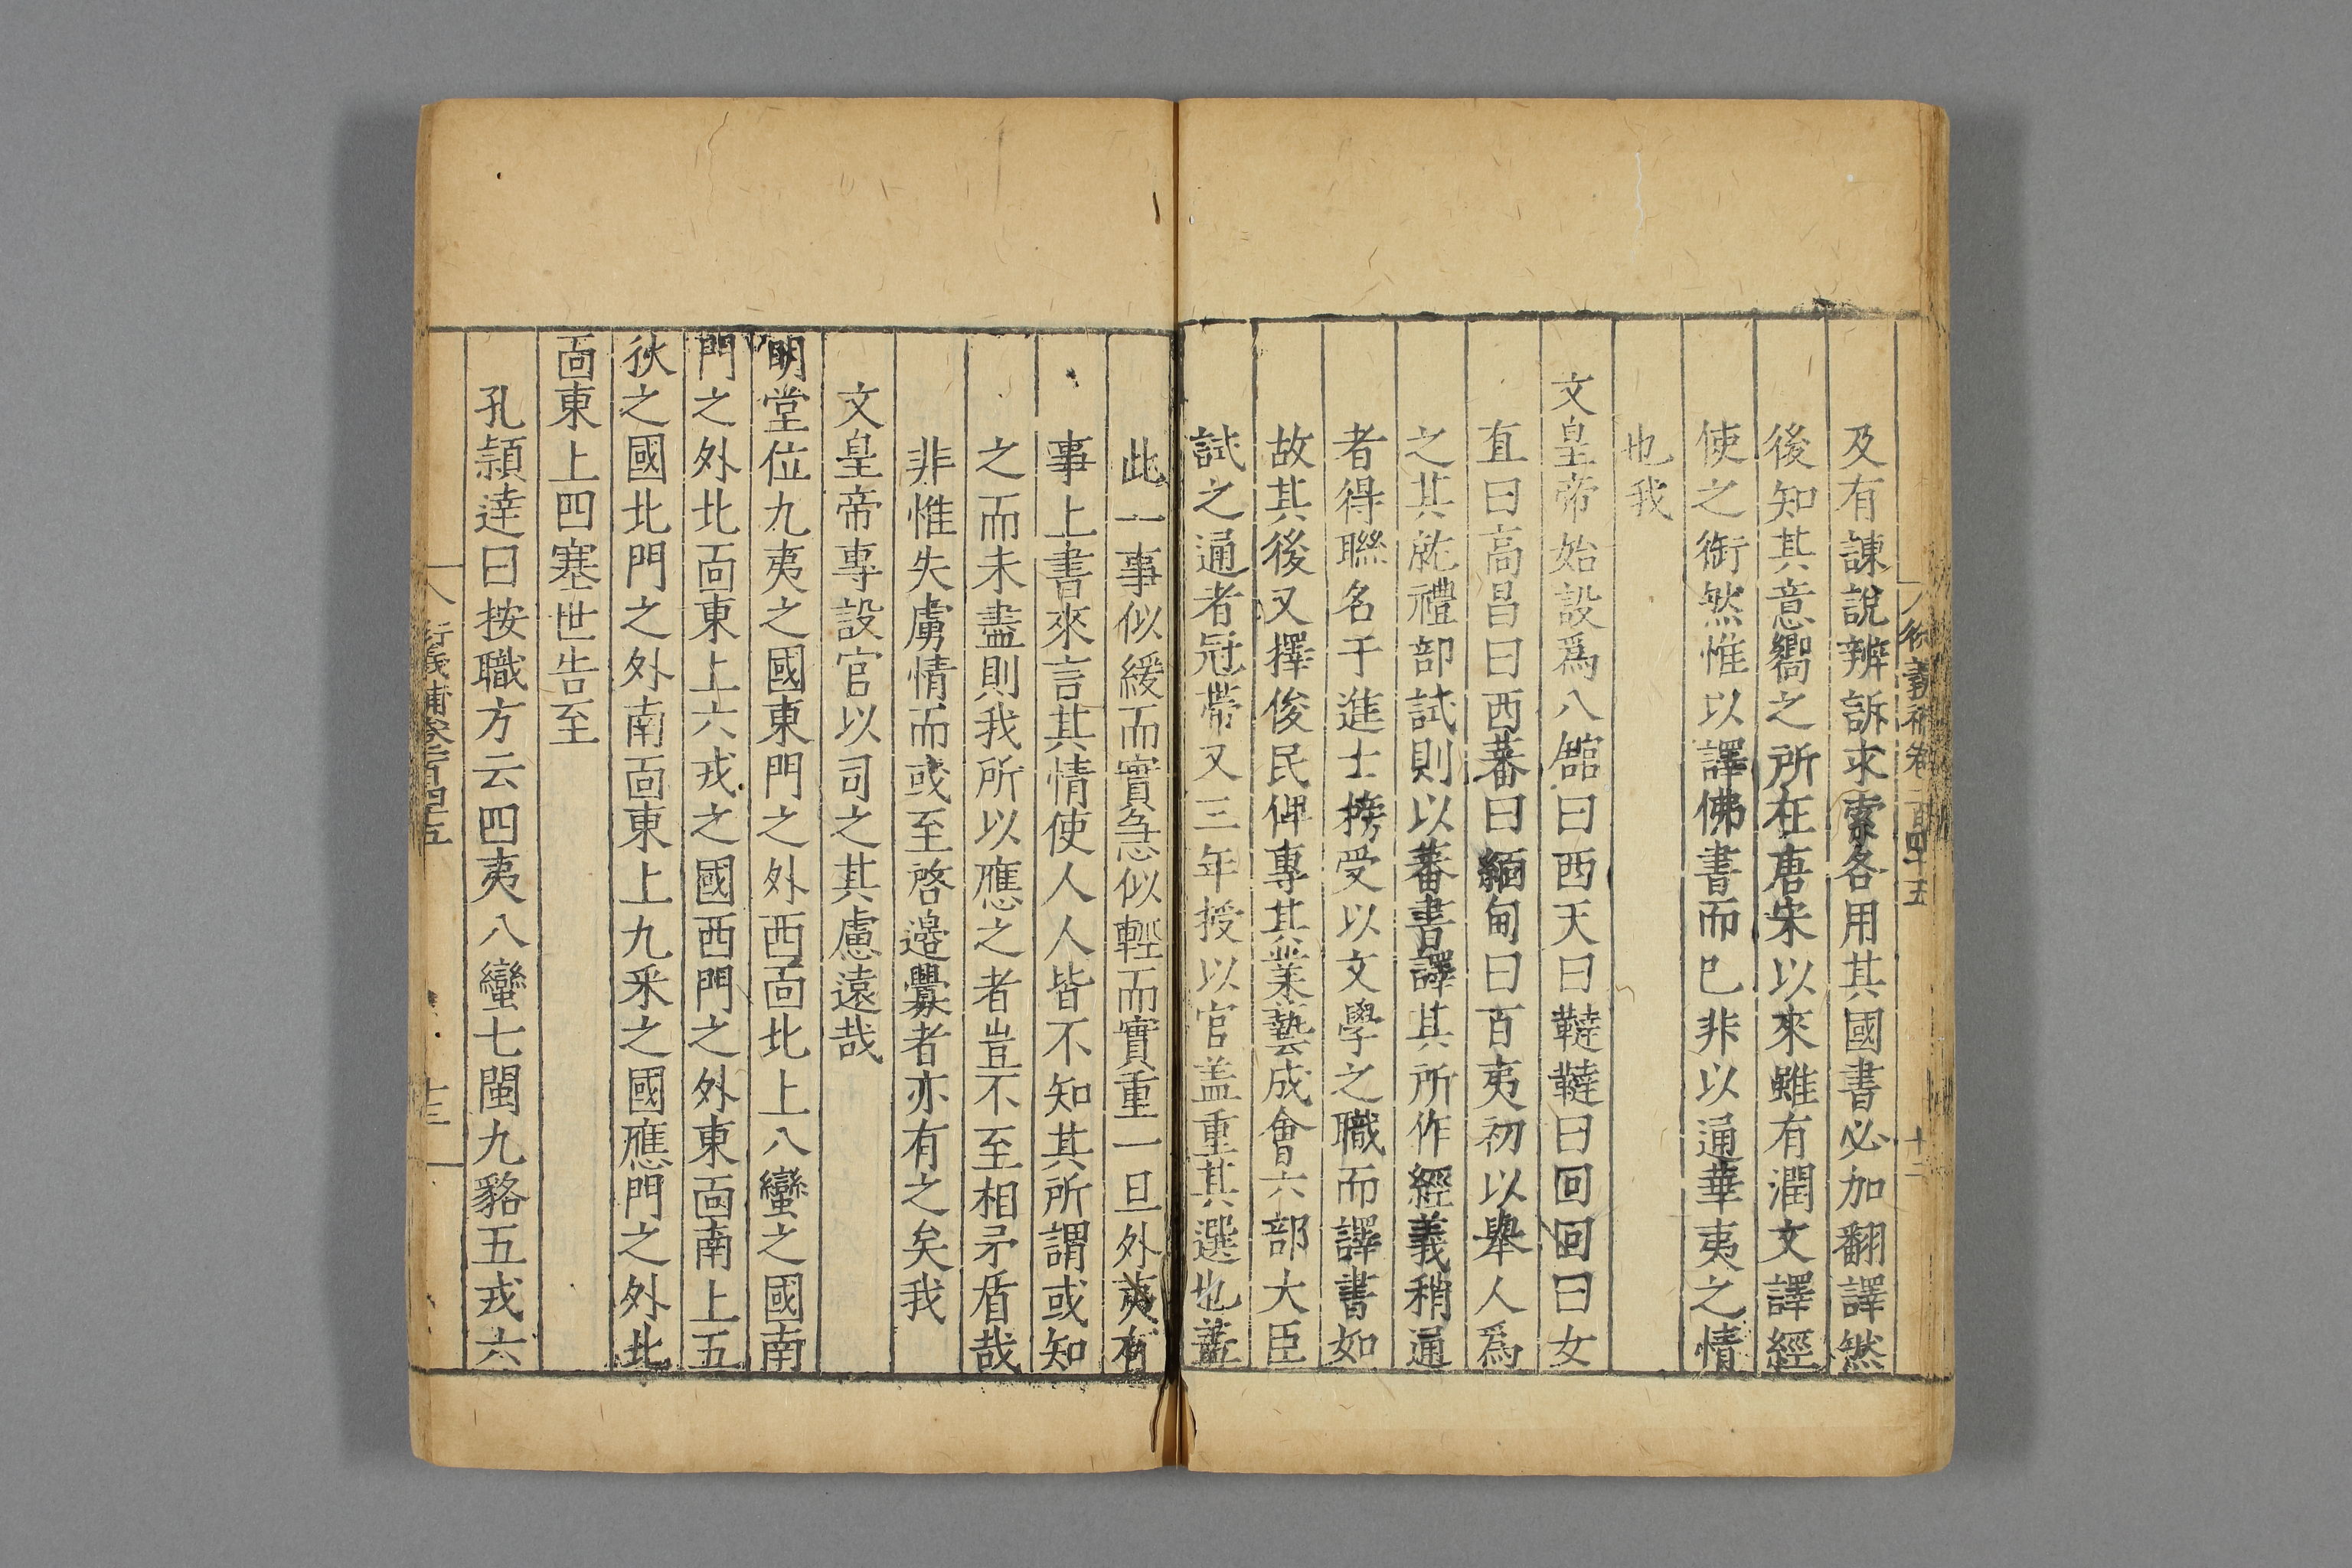 衍義補卷一百四十五 十二
及有諫說辨訴求索各用其國書必加翻譯然
後知其意嚮之所在唐宋以來雖有潤文譯經
使之銜然惟以譯佛書而已非以通華夷之情
也我
文皇帝始設爲八館曰西天曰韃韃曰回回曰女
直曰高昌曰西蕃曰緬甸曰百夷初以舉人爲
之其就禮部試則以蕃書譯其所作經義稍通
者得聯名于進士榜受以文學之職而譯書如
故其後又擇俊民俾專其業藝成會六部大臣
試之通者冠帶又三年授以官盖重其選也盖
此一事似緩而實急似輕而實重一旦外夷有
事上書來言其情使人人皆不知其所謂或知
之而未盡則我所以應之者豈不至相矛盾哉
非惟失虜情而或至啓邉釁者亦有之矣我
文皇帝專設官以司之其慮遠哉
明堂位九夷之國東門之外西面北上八蠻之國南
門之外北面東上六戎之國西門之外東面南上五
狄之國北門之外南面東上九采之國應門之外北
面東上四塞世告至
孔頴達曰按職方云四夷八蠻七閩九貉五戎六
衍義補卷一百四十五 十三